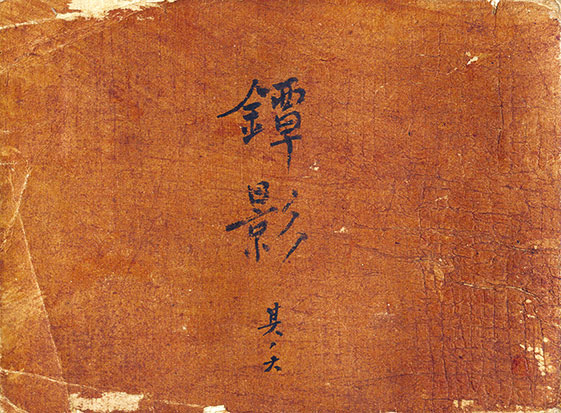 鐔影
其ノ六